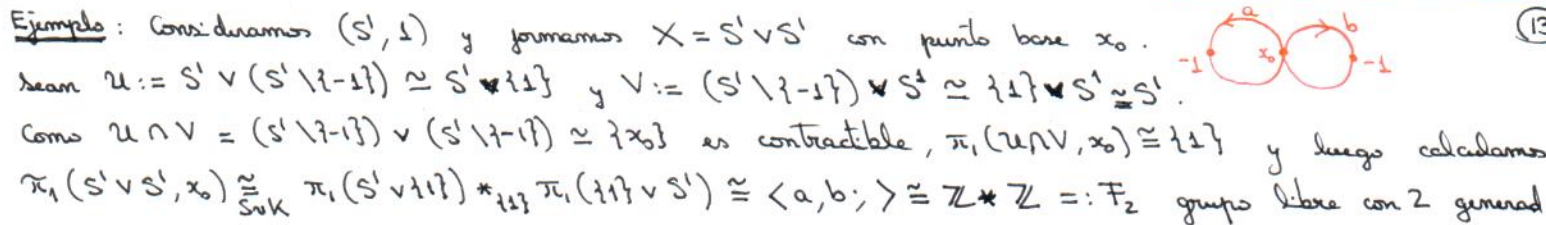 Ejemplo : Consideramos (S¹, 1) y formamos X = S¹ ∨ S¹ con punto base x₀. a b -1 x₀ -1 (13
Sean U := S¹ ∨ (S¹ \ {-1}) ≃ S¹ ∨ {1} y V := (S¹ \ {-1}) ∨ S¹ ≃ {1} ∨ S¹ ≅ S¹.
Como U ∩ V = (S¹ \ {-1}) ∨ (S¹ \ {-1}) ≃ {x₀} es contractible, π₁(U∩V, x₀) ≅ {1} y luego calculamos
π₁(S¹ ∨ S¹, x₀) ≅ SvK π₁(S¹ ∨ {1}) *_{{1}} π₁({1} ∨ S¹) ≅ <a, b; > ≅ ℤ * ℤ =: F₂ grupo libre con 2 generad